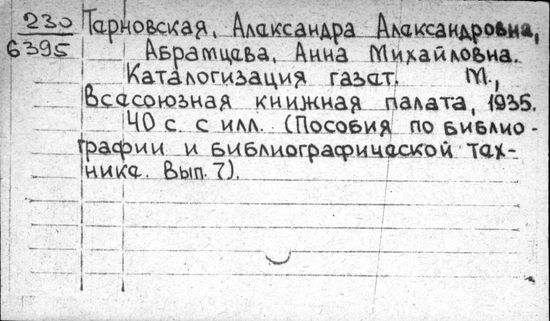 230 Тарновская, Александра Александровна,
6395 Абрамцева, Анна Михайловна.
Каталогизация газет. М.,
Всесоюзная книжная палата, 1935.
40 с. с илл. (Пособия по библио-
графии и библиографической тех-
нике. Вып. 7).